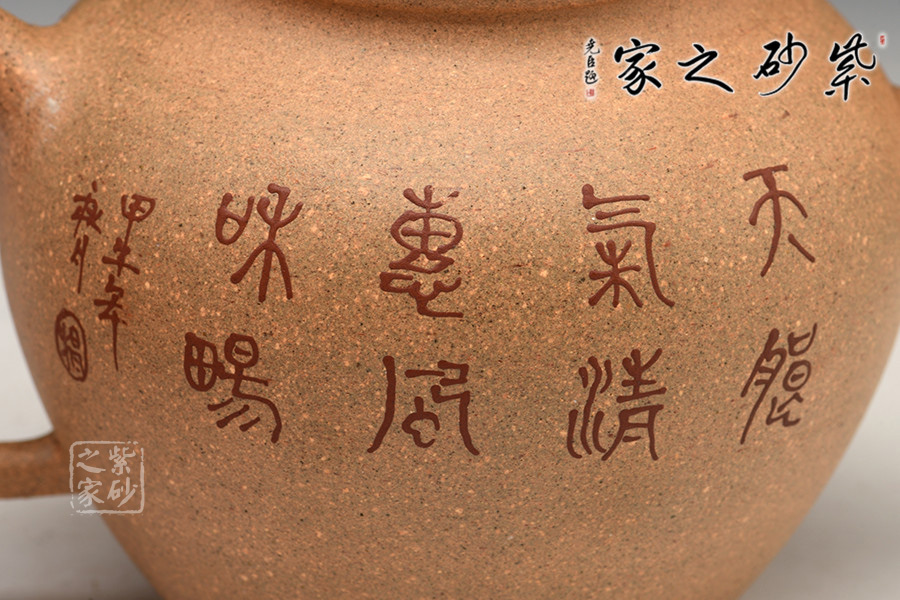 紫砂之家
堯臣題
天朗
氣清
惠風
和暢
甲午年
紫砂
之家